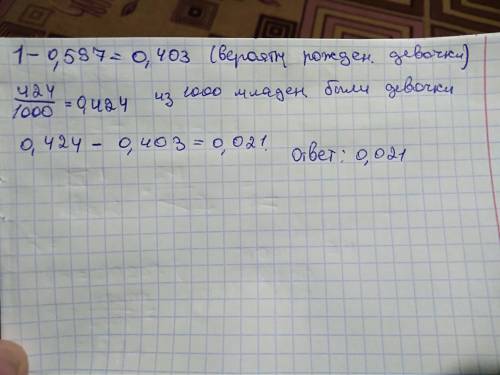 1 - 0,597 = 0,403 (вероятн рожден. девочки)
424/1000 = 0,424 из 1000 младен были девочки
0,424 - 0,403 = 0,021.
Ответ: 0,021